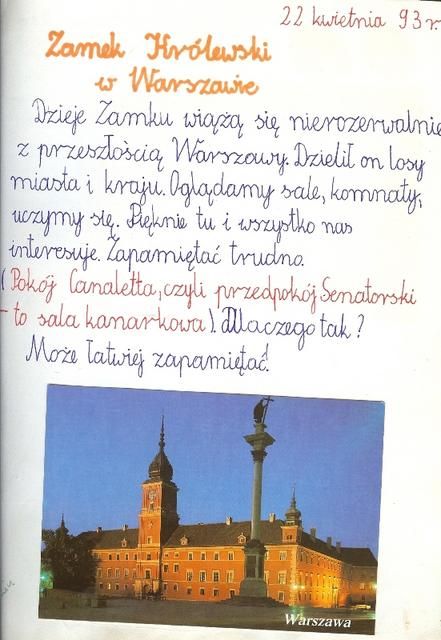 22 kwietnia 93 r.
Zamek Królewski
w Warszawie
Dzieje Zamku wiążą się nierozerwalnie
z przeszłością Warszawy. Dzielił on losy
miasta i kraju. Oglądamy sale, komnaty,
uczymy się. Pięknie tu i wszystko nas
interesuje. Zapamiętać trudno.
(Pokój Canaletta, czyli przedpokój Senatorski
– to sala kanarkowa). Dlaczego tak?
Może łatwiej zapamiętać!
Warszawa